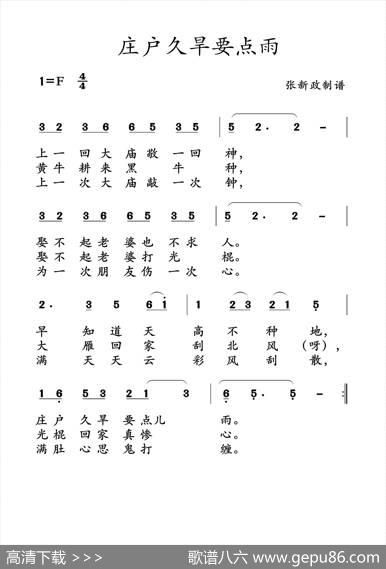 庄户久旱要点雨
1=F 4/4 张新政制谱
3 2 3 6 6 5 3 5 | 5 2. 2 - |
上一回大庙敬一回神，
黄牛耕来黑牛种，
上一次大庙敲一次钟，
3 2 3 6 6 5 3 5 | 5 2. 2 - |
娶不起老婆也不求人。
娶不起老婆打光棍。
为一次朋友伤一次心。
2. 3 5 6 1 | 1 2 3 2 1 5 |
旱知道天高不种地，
大雁回家刮北风(呀)，
满天天云彩风刮散，
1 6 5 3 2 1 3 | 6 5. 5. - :||
庄户久旱要点儿雨。
光棍回家真惨心。
满肚心思鬼打缠。
高清下载 >>>
歌谱八六 www.gepu86.com